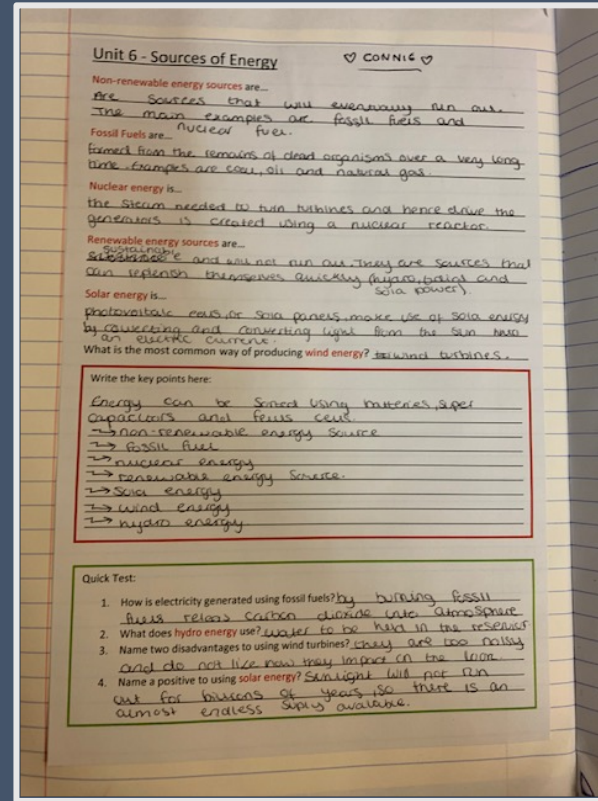 Unit 6 - Sources of Energy ♡ CONNIE ♡
Non-renewable energy sources are...
Are sources that will evenrually run out.
The main examples are fossil fuels and
nuclear fuel.
Fossil Fuels are...
formed from the remains of dead organisms over a very long
time. Examples are coal, oil and natural gas.
Nuclear energy is...
the steam needed to turn turbines and hence drive the
generators is created using a nuclear reactor.
Renewable energy sources are...
sustainable and will not run out. They are sources that
can replenish themselves quickly (hydro, and
sola power).
Solar energy is...
photovoltaic cells, or sola panels, make use of sola energy
by and converting light from the sun into
an electric current.
What is the most common way of producing wind energy? wind turbines.
Write the key points here:
Energy can be using batteries, super
capacitors and cells.
→ non-renewable energy source
→ fossil fuel
→ nuclear energy
→ renewable energy source.
→ sola energy
→ wind energy
→ hydro energy
Quick Test:
1. How is electricity generated using fossil fuels? by burning fossil
fuels carbon dioxide into atmosphere
2. What does hydro energy use? water to be held in the reservior
3. Name two disadvantages to using wind turbines? they are too noisy
and do not like how they impact on the
4. Name a positive to using solar energy? Sunlight will not run
out for billions of years, so there is an
almost endless suply avalable.